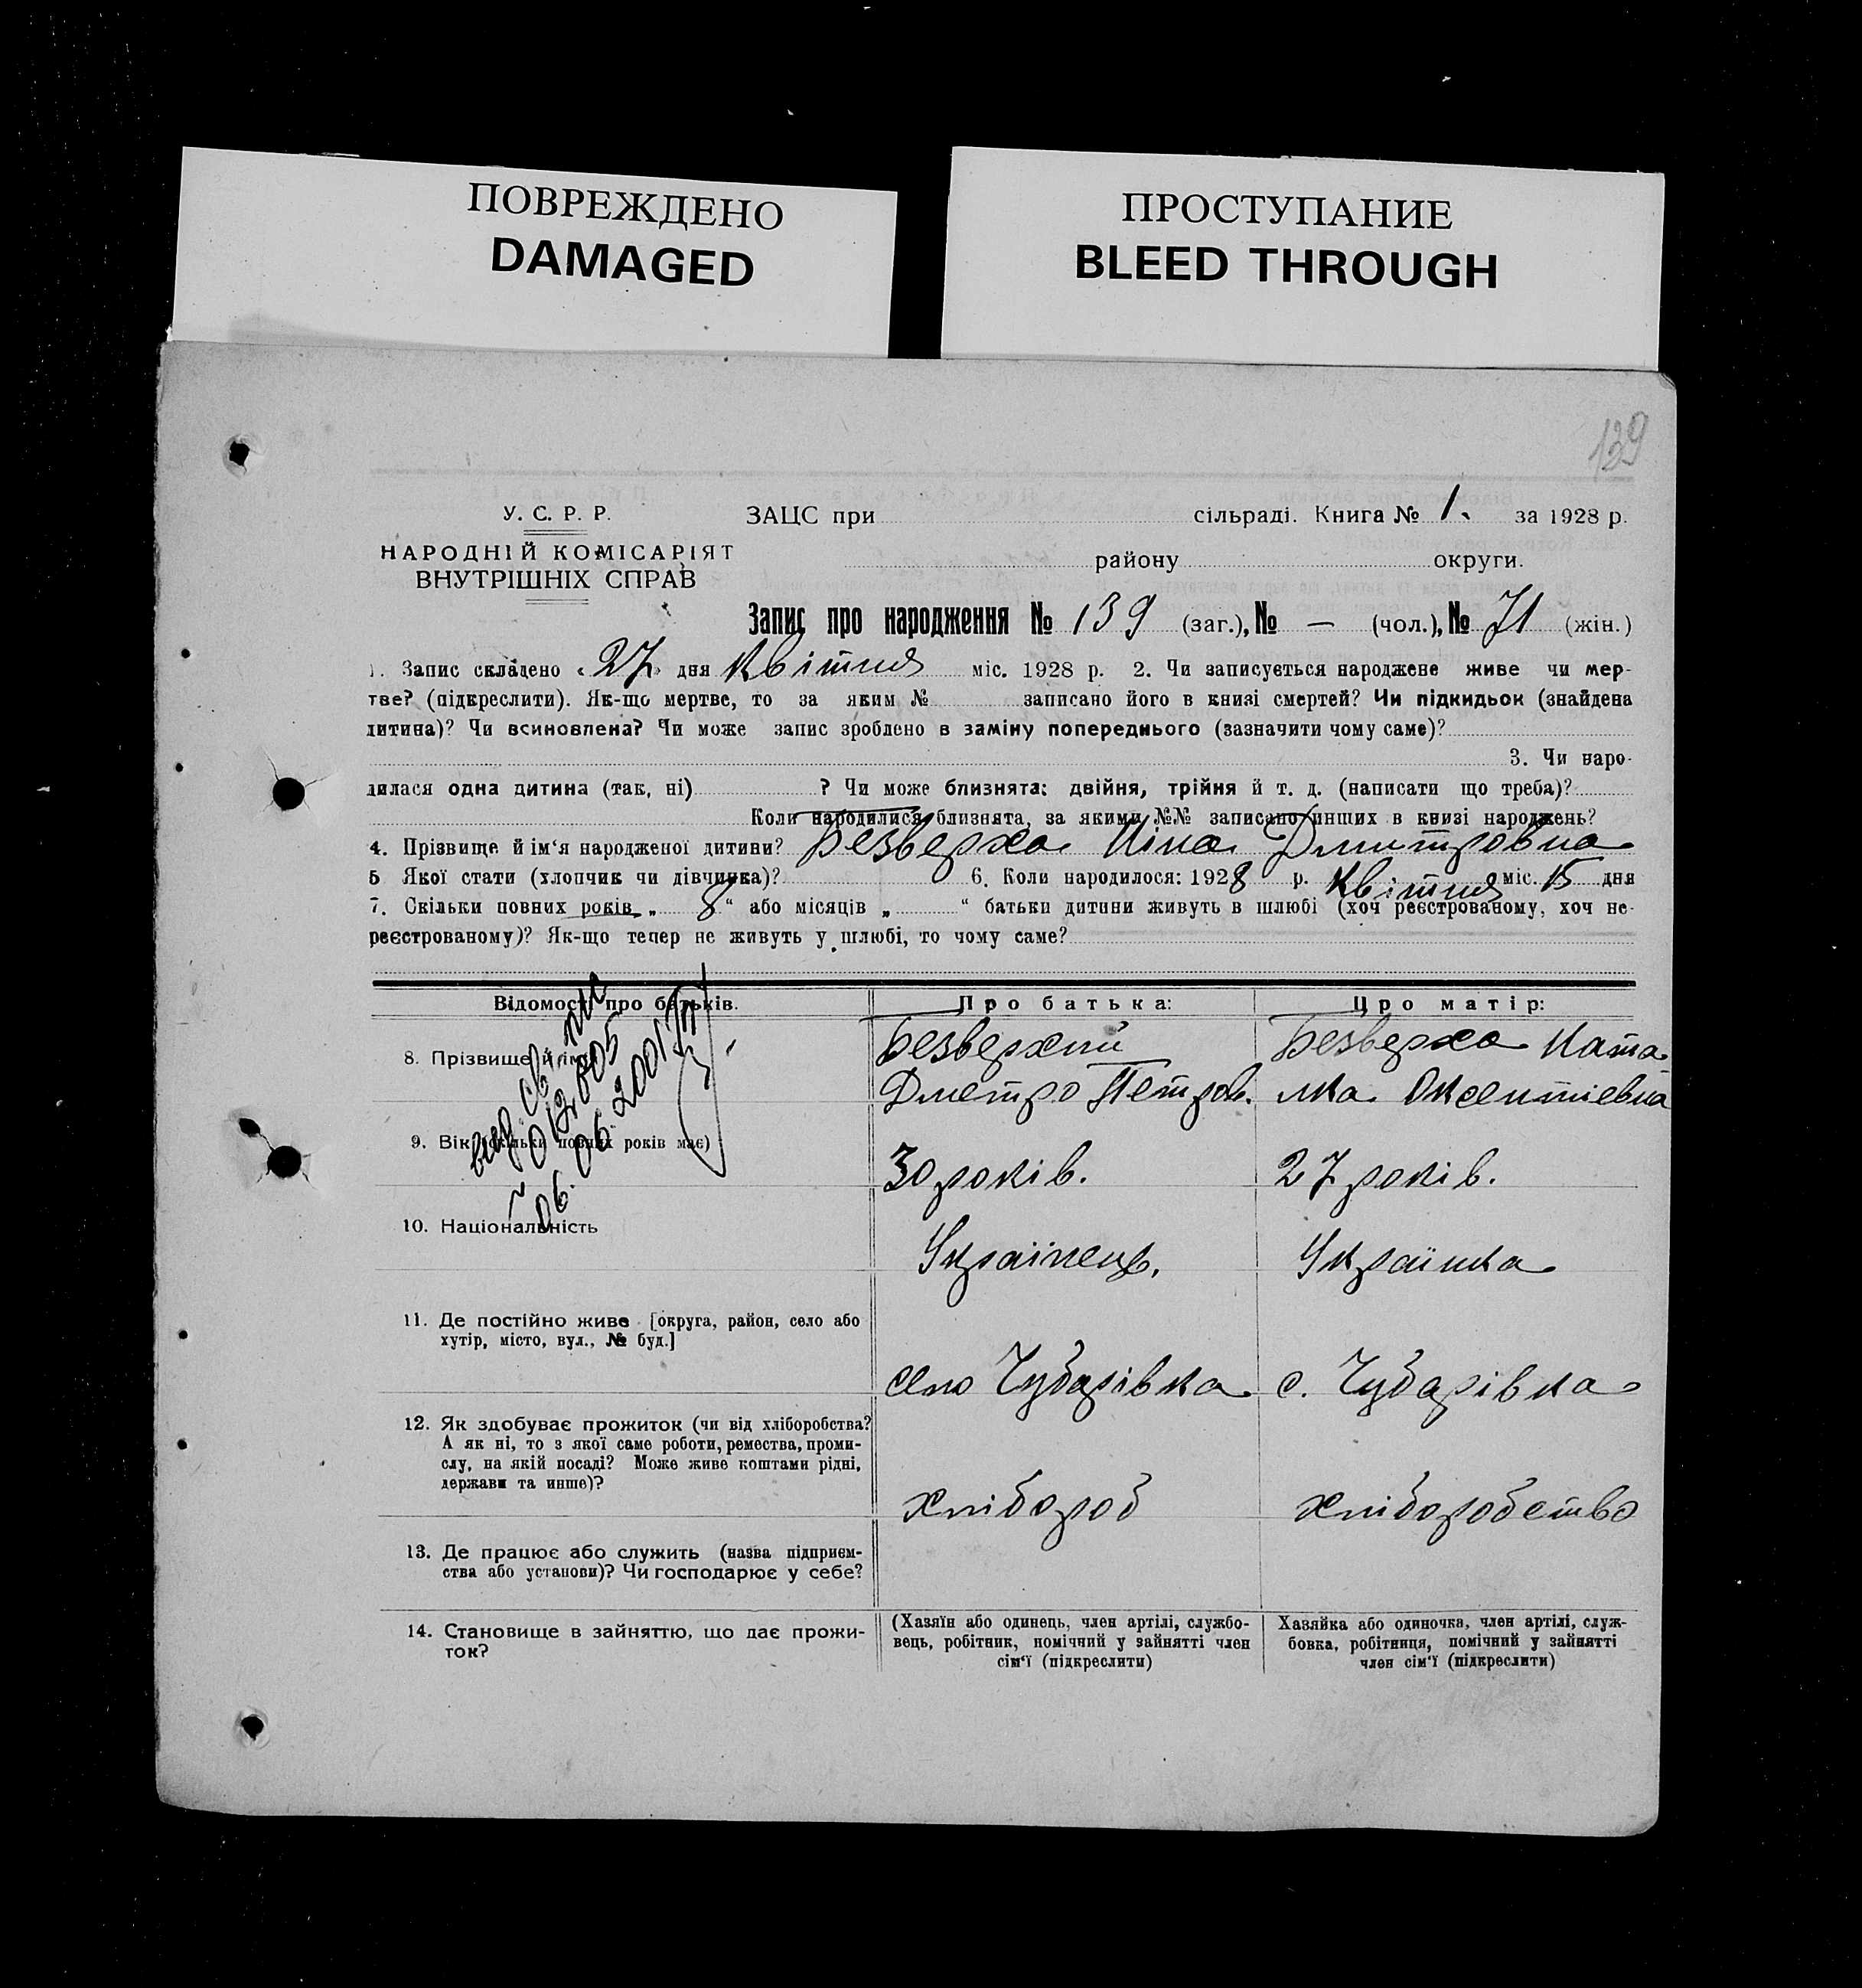 ПОВРЕЖДЕНО
DAMAGED
ПРОСТУПАНИЕ
BLEED THROUGH
139
У. С. Р. Р.
НАРОДНІЙ КОМІСАРІЯТ
ВНУТРІШНІХ СПРАВ
ЗАЦС при сільраді. Книга № 1. за 1928 р.
району округи.
Запис про народження № 139 (заг.), № — (чол.), № 71 (жін.)
1. Запис складено «27» дня Квітня міс. 1928 р. 2. Чи записується народжене живе чи мер-
тве? (підкреслити). Як-що мертве, то за яким № записано його в книзі смертей? Чи підкидьок (знайдена
дитина)? Чи всиновлена? Чи може запис зроблено в заміну попереднього (зазначити чому саме)?
3. Чи наро-
дилася одна дитина (так, ні) ? Чи може близнята: двійня, трійня й т. д. (написати що треба)?
Коли народилися близнята, за якими №№ записано инших в книзі народжень?
4. Прізвище й ім'я народженої дитини? Безверха Ніна Дмитровна
5 Якої стати (хлопчик чи дівчинка)? 6. Коли народилося: 1928 р. Квітня міс. 15 дня
7. Скільки повних років „ 8 “ або місяців „ “ батьки дитини живуть в шлюбі (хоч реєстрованому, хоч не-
реєстрованому)? Як-що тепер не живуть у шлюбі, то чому саме?
Відомості про батьків. Про батька: Про матір:
8. Прізвище й ім'я
Безверхий
Дметро Петров.
Безверха Ната
лка Оксентіевна
06.06.2001
9. Вік (скільки повних років має)
30 років.
27 років.
10. Національність
Українець.
Українка
11. Де постійно живе [округа, район, село або
хутір, місто, вул., № буд.]
село Чубарівка
с. Чубарівка
12. Як здобуває прожиток (чи від хліборобства?
А як ні, то з якої саме роботи, ремества, проми-
слу, на якій посаді? Може живе коштами рідні,
держави та инше)?
хлібороб
хліборобство
13. Де працює або служить (назва підприєм-
ства або установи)? Чи господарює у себе?
14. Становище в зайняттю, що дає прожи-
ток?
(Хазяїн або одинець, член артілі, службо-
вець, робітник, помічний у зайнятті член
сім'ї (підкреслити)
Хазяйка або одиночка, член артілі, служ-
бовка, робітниця, помічний у зайнятті
член сім'ї (підкреслити)